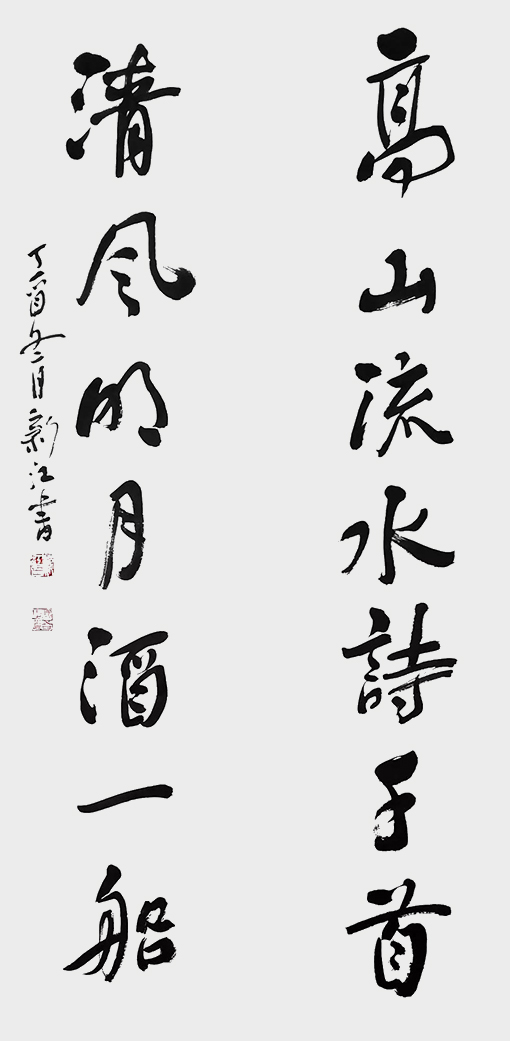 高山流水詩千首
清风明月酒一船
丁酉冬月新江書